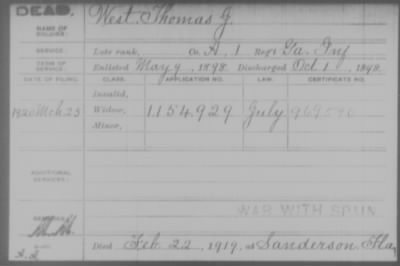 DEAD.
NAME OF SOLDIER:
West, Thomas J.
SERVICE:
Late rank, Co. A, 1 Reg't Ga. Inf
TERM OF SERVICE:
Enlisted May 9, 1898. Discharged Oct. 1, 1898
DATE OF FILING. CLASS. APPLICATION NO. LAW. CERTIFICATE NO.
Invalid,
1920 Mch. 23 Widow, 1154.929 July 969590
Minor,
ADDITIONAL SERVICES:
WAR WITH SPAIN
REMARKS:
Died Feb. 22, 1919, at Sanderson, Fla